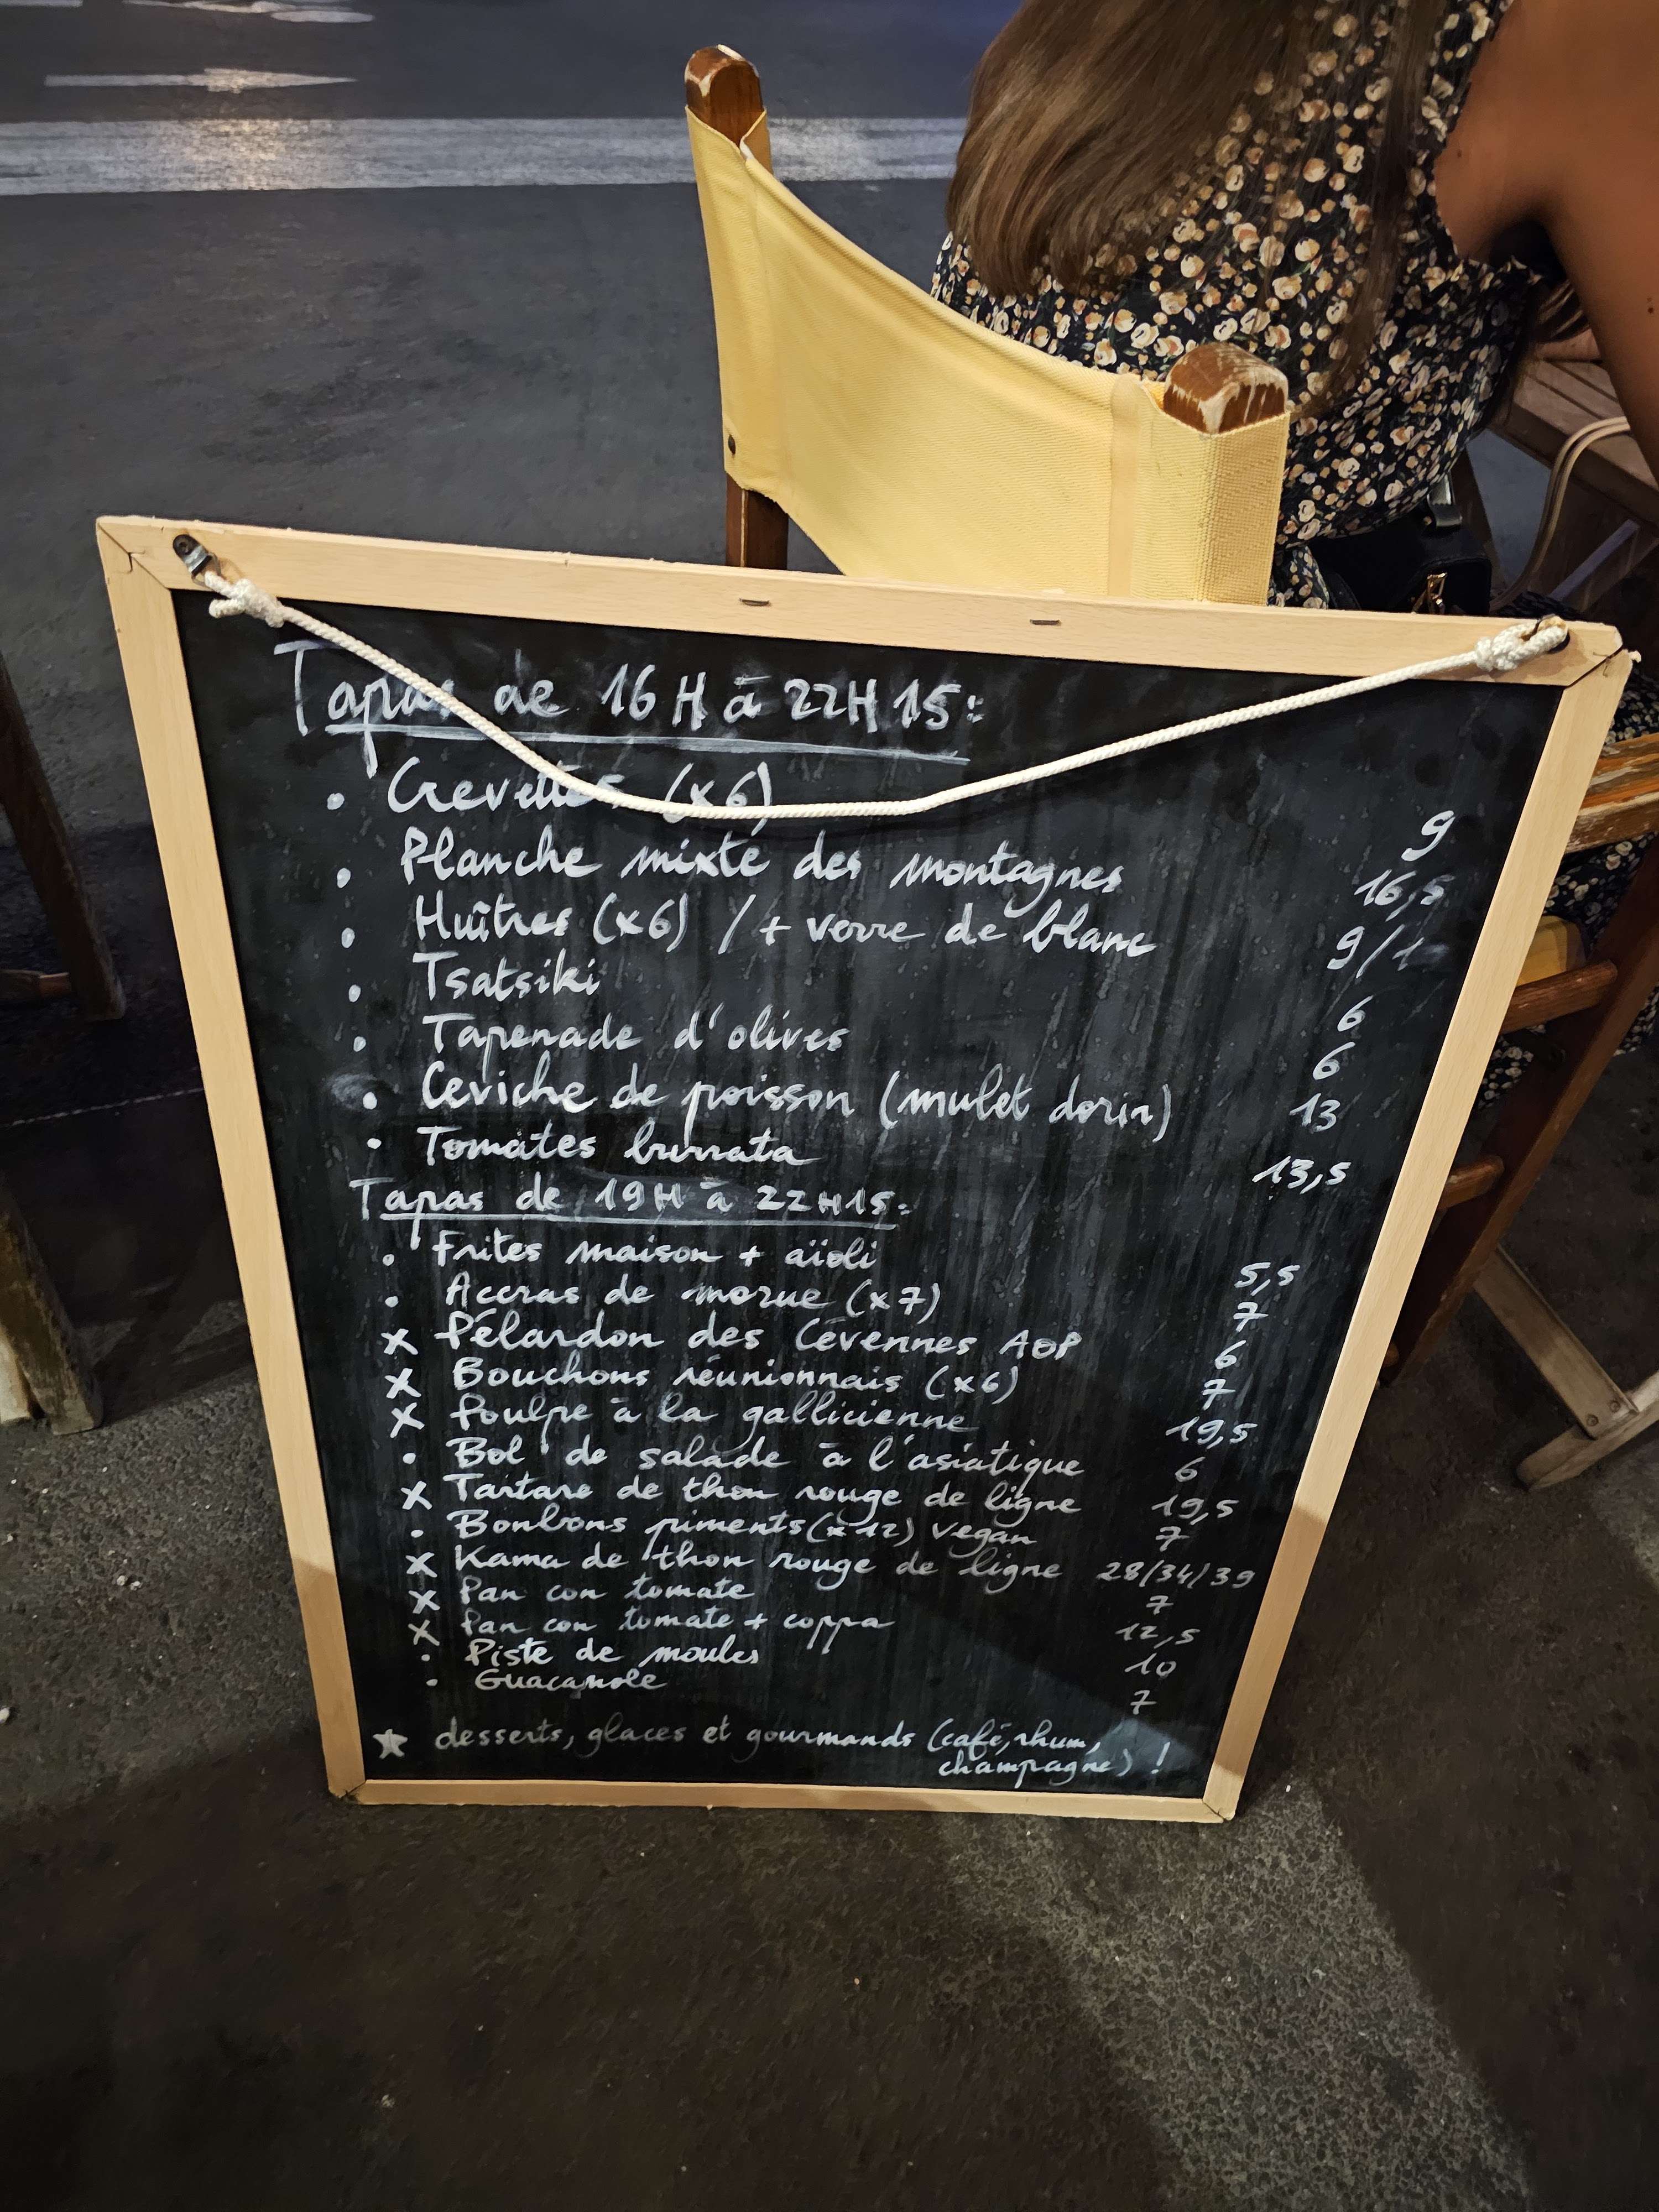 Tapas de 16H à 22H15:
• Crevettes (x6) 9
• Planche mixte des montagnes 16,5
• Huîtres (x6) / + verre de blanc 9/
• Tsatsiki 6
• Tapenade d'olives 6
• Ceviche de poisson (mulet dorin) 13
• Tomates burrata 13,5
Tapas de 19H à 22H15:
• Frites maison + aïoli 5,5
• Accras de morue (x7) 7
x Pélardon des Cévennes AOP 6
x Bouchons réunionnais (x6) 7
x Poulpe à la gallicienne 19,5
• Bol de salade à l'asiatique 6
x Tartare de thon rouge de ligne 19,5
• Bonbons piments (x12) vegan 7
x Kama de thon rouge de ligne 28/34/39
x Pan con tomate 7
x Pan con tomate + coppa 12,5
• Piste de moules 10
• Guacamole 7
★ desserts, glaces et gourmands (café, rhum,
champagne) !